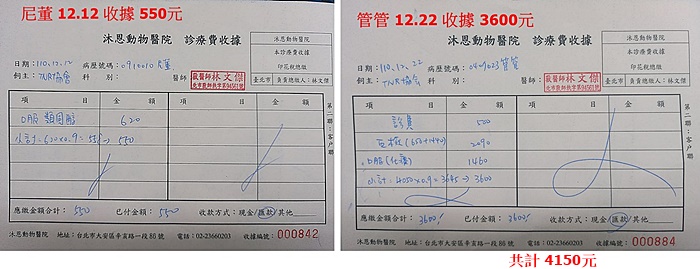 尼董 12.12 收據 550元
沐恩動物醫院 診療費收據
沐恩動物醫院
本診療費收據
印花稅總繳
日期：110.12.12 病歷號碼：
飼主：TNR協會 科 別： 醫師：獸醫師林文傑
臺北市 負責總繳人：林文傑
項 目 金 額 項 目 金 額
620
小計：620x0.9=558→550
應繳金額合計：550 已付金額：550 收款方式：現金/匯款/其他
沐恩動物醫院 地址：台北市大安區辛亥路一段86號 電話：02-23660203 收據編號：000842
第二聯：客戶聯
管管 12.22 收據 3600元
沐恩動物醫院 診療費收據
沐恩動物醫院
本診療費收據
印花稅總繳
日期：110.12.22 病歷號碼：
飼主：TNR協會 科 別： 醫師：獸醫師林文傑
臺北市 負責總繳人：林文傑
項 目 金 額 項 目 金 額
診費 500
2090
1460
小計：4050x0.9=3645→3600
應繳金額合計：3600 已付金額：3600 收款方式：現金/匯款/其他
沐恩動物醫院 地址：台北市大安區辛亥路一段86號 電話：02-23660203 收據編號：000884
第二聯：客戶聯
共計 4150元